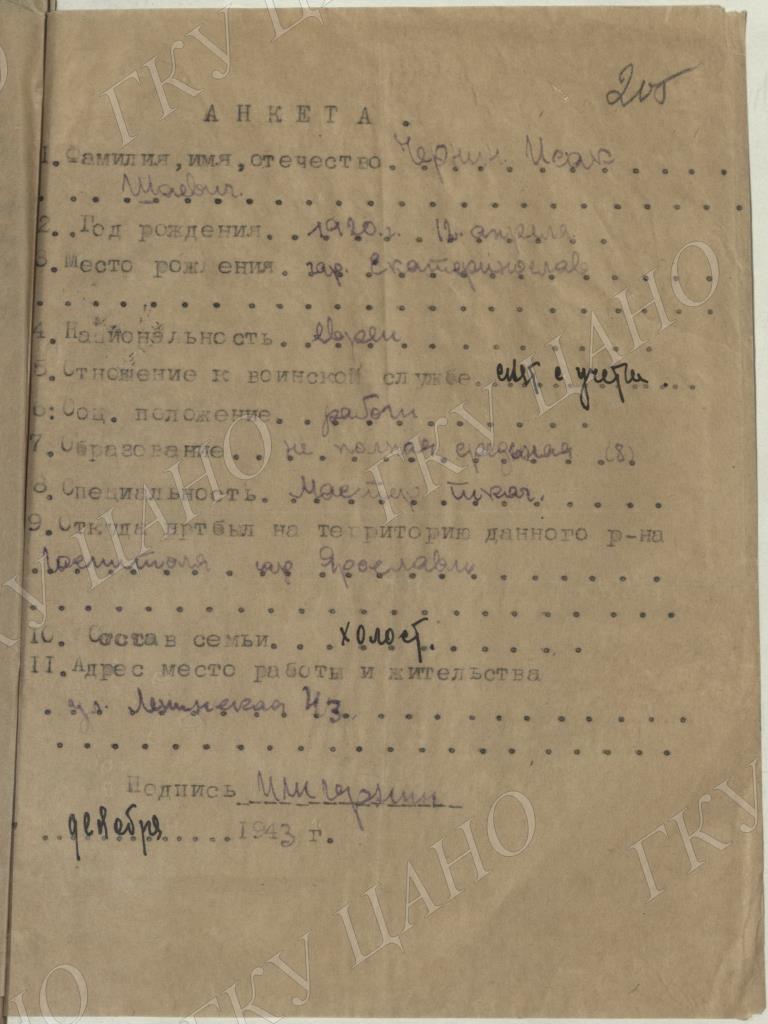 205
АНКЕТА.
1. Фамилия, имя, отчество. Чернин Исак
Шаевич.
2. Год рождения. 1920 г. 12 апреля
3. Место рождения. гор. Екатеринослав
4. Национальность. еврей
5. Отношение к воинской службе. снят с учета
6: Соц. положение. рабочи
7. Образование. не полная средьная (8)
8. Специальность. Мастер ткач.
9. Откуда пртбыл на территорию данного р-на
Госпиталя гор Ярославль
10. Состав семьи. холост.
11. Адрес место работы и жительства
ул. Ленинская 43.
Подпись Чернин
декабря 1943 г.
ГКУ ЦАНО